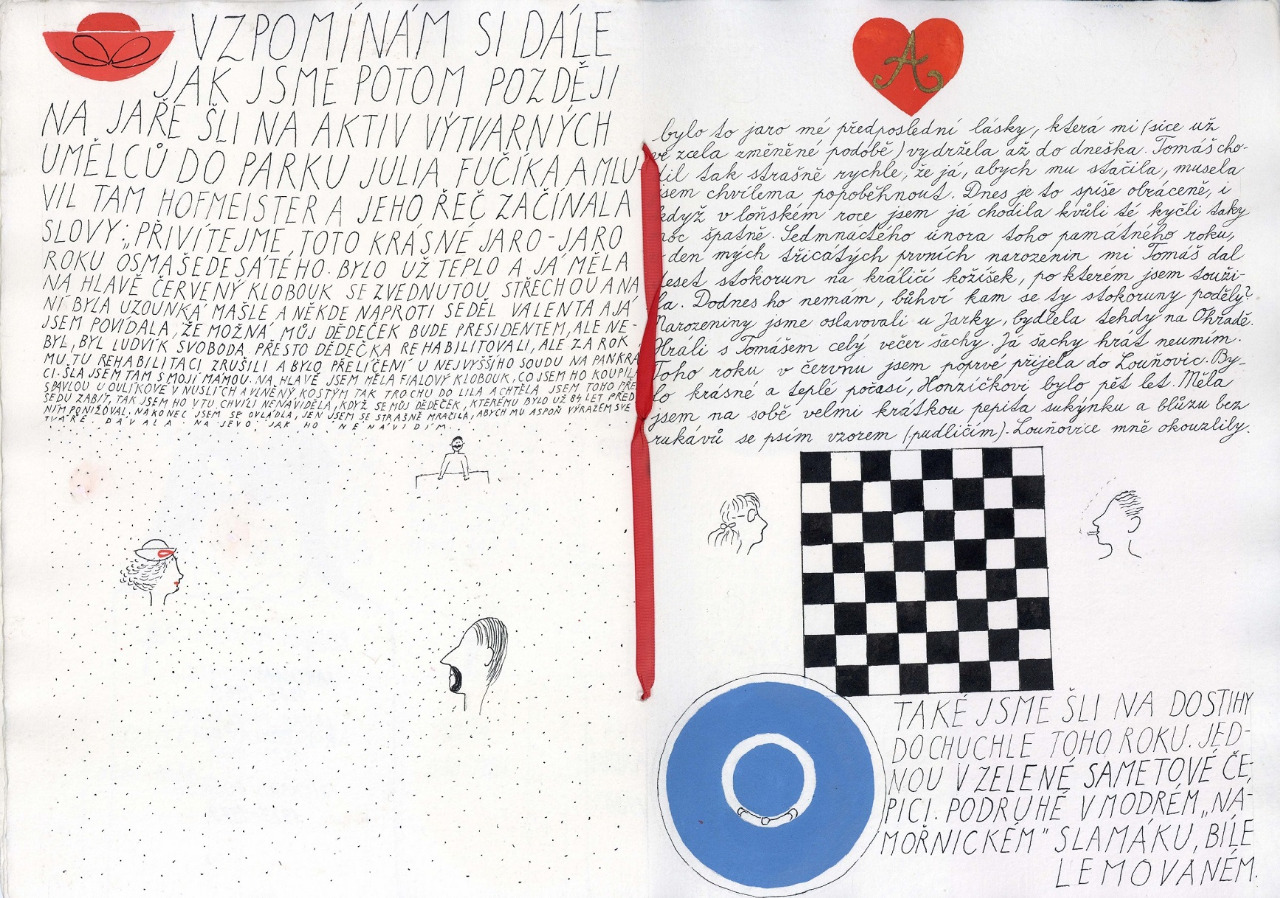 VZPOMÍNÁM SI DÁLE
JAK JSME POTOM POZDĚJI
NA JAŘE ŠLI NA AKTIV VÝTVARNÝCH
UMĚLCŮ DO PARKU JULIA FUČÍKA, A MLU-
VIL TAM HOFMEISTER A JEHO ŘEČ ZAČÍNALA
SLOVY: „PŘIVÍTEJME TOTO KRÁSNÉ JARO-JARO
ROKU OSMAŠEDESÁTÉHO. BYLO UŽ TEPLO A JÁ MĚLA
NA HLAVĚ ČERVENÝ KLOBOUK SE ZVEDNUTOU STŘECHOU A NA
NÍ BYLA UZOUNKÁ MAŠLE A NĚKDE NAPROTI SEDĚL VALENTA A JÁ
JSEM POVÍDALA, ŽE MOŽNÁ MŮJ DĚDEČEK BUDE PRESIDENTEM, ALE NE-
BYL, BYL LUDVÍK SVOBODA. PŘESTO DĚDEČKA REHABILITOVALI, ALE ZA ROK
MU TU REHABILITACI ZRUŠILI A BYLO PŘELÍČENÍ U NEJVYŠŠÍHO SOUDU NA PANKRÁ
CI. ŠLA JSEM TAM S MOJÍ MAMOU. NA HLAVĚ JSEM MĚLA FIALOVÝ KLOBOUK, CO JSEM HO KOUPILA
S PAVLOU U OULÍKOVÉ V NUSLÍCH A VLNĚNÝ KOSTÝM TAK TROCHU DO LILA A CHTĚLA JSEM TOHO PŘE
SEDU ZABÍT, TAK JSEM HO V TU CHVÍLI NENÁVIDĚLA, KDYŽ SE MŮJ DĚDEČEK, KTERÉMU BYLO UŽ 84 LET PŘED
NÍM PONIŽOVAL, NAKONEC JSEM SE OVLÁDLA, JEN JSEM SE STRAŠNĚ MRAČILA, ABYCH MU ASPOŇ VÝRAZEM SVÉ
TVÁŘE DÁVALA NAJEVO JAK HO NENÁVIDÍM.
A
bylo to jaro mé předposlední lásky, která mi (sice už
ve zcela změněné podobě) vydržela až do dneška. Tomáš cho-
dil tak strašně rychle, že já, abych mu stačila, musela
jsem chvílema popoběhnout. Dnes je to spíše obráceně, i
když v loňském roce jsem já chodila kvůli té kyčli taky
moc špatně. Sedmnáctého února toho památného roku,
den mých třicátých prvních narozenin mi Tomáš dal
deset stokorun na králičí kožíšek, po kterém jsem touži-
la. Dodnes ho nemám, bůhví kam se ty stokoruny poděly?
Narozeniny jsme oslavovali u Jarky, bydlela tehdy na Ohradě.
Hráli s Tomášem celý večer šachy. Já šachy hrát neumím.
Toho roku v červnu jsem poprvé přijela do Louňovic. By-
lo krásné a teplé počasí, Honzíčkovi bylo pět let. Měla
jsem na sobě velmi krátkou pepita sukýnku a blůzu bez
rukávů se psím vzorem (pudličím). Louňovice mně okouzlily.
TAKÉ JSME ŠLI NA DOSTIHY
DO CHUCHLE TOHO ROKU. JED-
NOU V ZELENÉ SAMETOVÉ ČE-
PICI. PODRUHÉ V MODRÉM „NÁ-
MOŘNICKÉM" SLAMÁKU, BÍLE
LEMOVANÉM.